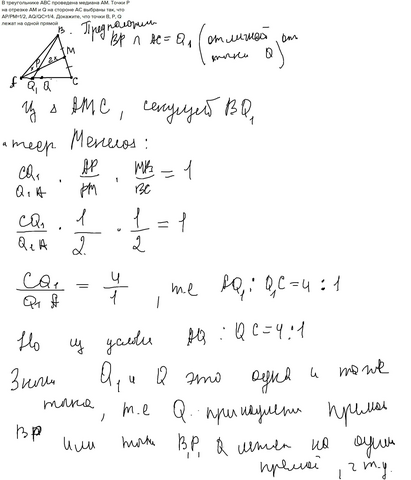 В треугольнике ABC проведена медиана AM. Точки P
на отрезке AM и Q на стороне AC выбраны так, что
AP/PM=1/2, AQ/QC=1/4. Докажите, что точки B, P, Q
лежат на одной прямой
Предположим
BP ∩ AC = Q₁ (отличной от
точки Q)
B
M
P
2x
A Q₁ Q C
Из △ AMC, секущей BQ₁
теор Менелая:
CQ₁/Q₁A · AP/PM · MB/BC = 1
CQ₁/Q₁A · 1/2 · 1/2 = 1
CQ₁/Q₁A = 4/1, т.е AQ₁ : Q₁C = 4 : 1
Но из условия AQ : QC = 4 : 1
Значит Q₁ и Q это одна и та же
точка, т.е Q принадлежит прямой
BP или точки B, P, Q лежат на одной
прямой, ч т.д.